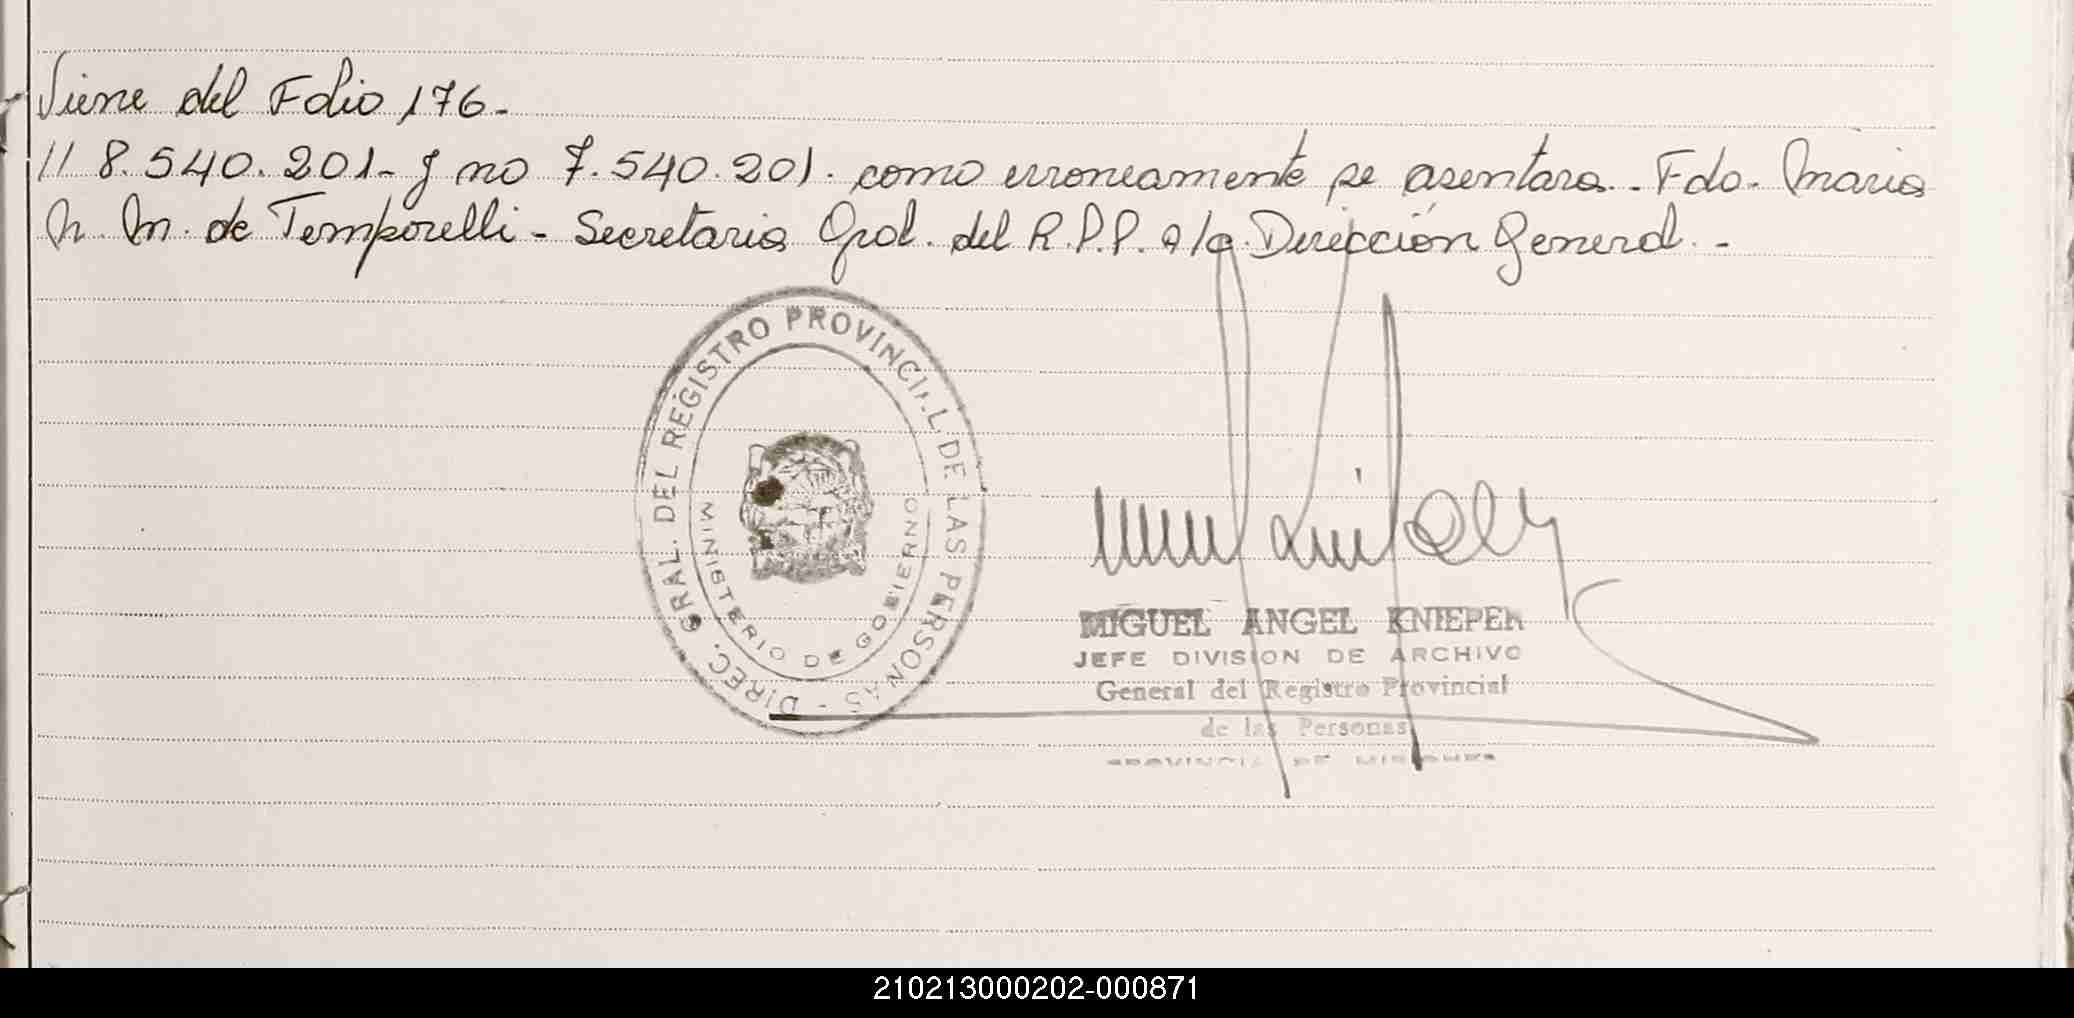 Viene del Folio 176.
// 8.540.201- y no 7.540.201. como erroneamente se asentara.- Fdo. Maria
N. M. de Temporelli - Secretaria Gral. del R.P.P. a/c. Dirección General.-
DIREC. GRAL. DEL REGISTRO PROVINCIAL DE LAS PERSONAS -
MINISTERIO DE GOBIERNO
MIGUEL ANGEL KNIEPER
JEFE DIVISION DE ARCHIVO
General del Registro Provincial
de las Personas
PROVINCIA DE MISIONES
210213000202-000871